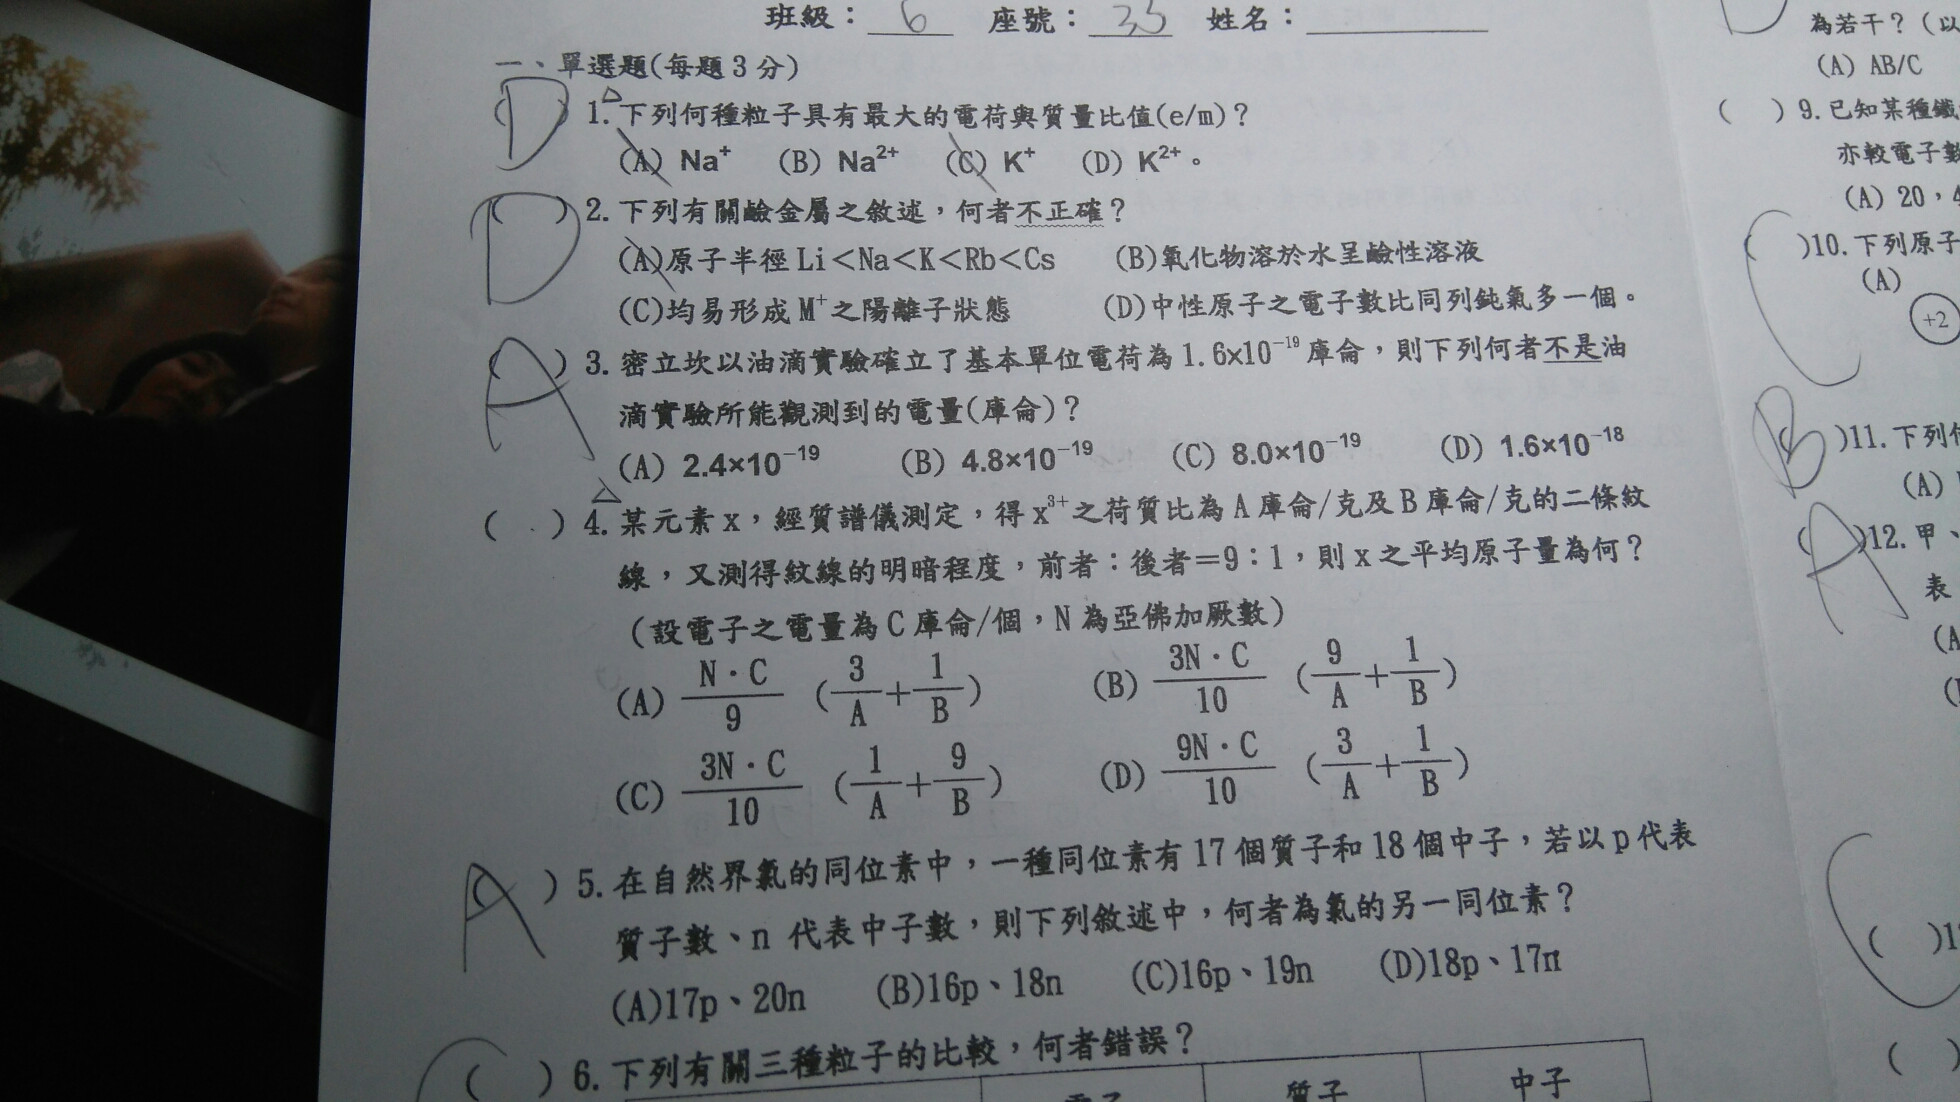 班級：6 座號：33 姓名：
一、單選題(每題3分)
(D) 1.下列何種粒子具有最大的電荷與質量比值(e/m)？
(A) Na⁺ (B) Na²⁺ (C) K⁺ (D) K²⁺。
(D) 2.下列有關鹼金屬之敘述，何者不正確？
(A)原子半徑Li＜Na＜K＜Rb＜Cs (B)氧化物溶於水呈鹼性溶液
(C)均易形成M⁺之陽離子狀態 (D)中性原子之電子數比同列鈍氣多一個。
(A) 3.密立坎以油滴實驗確立了基本單位電荷為1.6x10⁻¹⁹庫侖，則下列何者不是油
滴實驗所能觀測到的電量(庫侖)？
(A) 2.4×10⁻¹⁹ (B) 4.8×10⁻¹⁹ (C) 8.0×10⁻¹⁹ (D) 1.6×10⁻¹⁸
( ) 4.某元素x，經質譜儀測定，得x³⁺之荷質比為A庫侖/克及B庫侖/克的二條紋
線，又測得紋線的明暗程度，前者：後者＝9：1，則x之平均原子量為何？
(設電子之電量為C庫侖/個，N為亞佛加厥數)
(A) N·C/9 (3/A+1/B) (B) 3N·C/10 (9/A+1/B)
(C) 3N·C/10 (1/A+9/B) (D) 9N·C/10 (3/A+1/B)
(A) 5.在自然界氯的同位素中，一種同位素有17個質子和18個中子，若以p代表
質子數、n 代表中子數，則下列敘述中，何者為氯的另一同位素？
(A)17p、20n (B)16p、18n (C)16p、19n (D)18p、17n
( ) 6.下列有關三種粒子的比較，何者錯誤？
電子 質子 中子
為若干？(以
(A) AB/C
( ) 9.已知某種纖
亦較電子數
(A) 20，4
( )10.下列原子
(A)
+2
(B)11.下列
(A)
(A)12.甲、
表
(A
( )1
( )